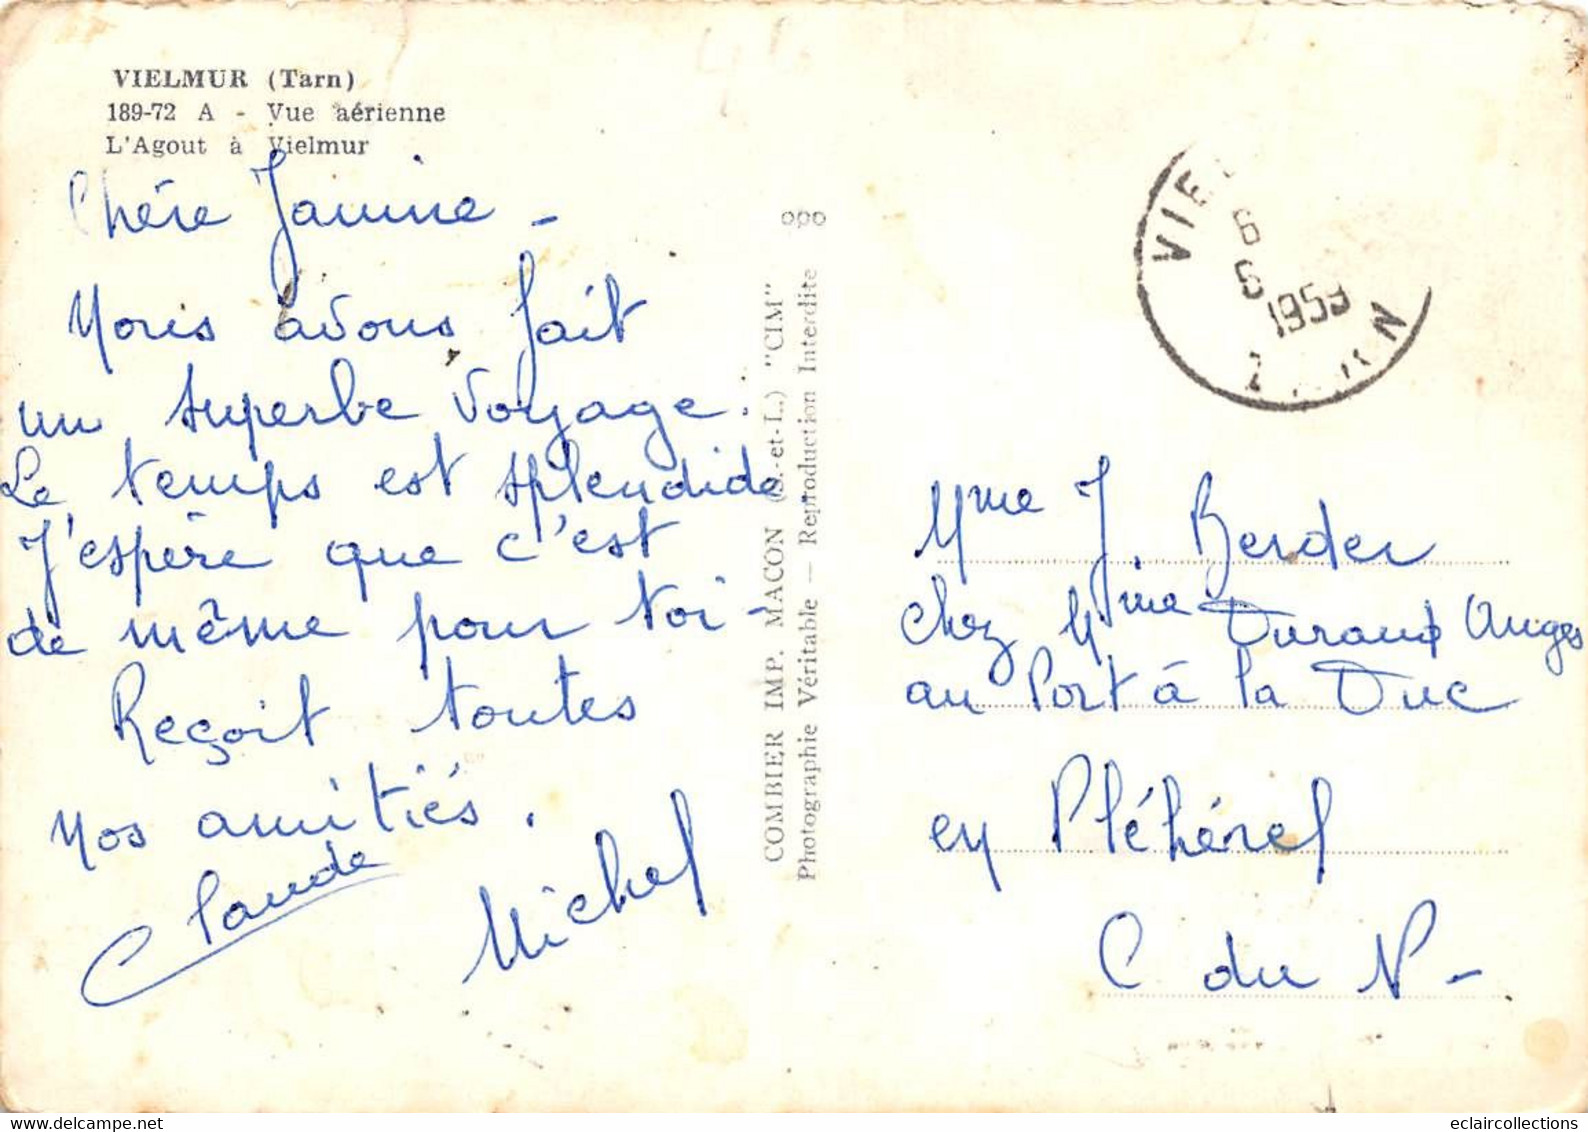 VIELMUR (Tarn)
189-72 A - Vue aérienne
L'Agout à Vielmur
Chère Janine -
Nous avons fait
un superbe voyage.
Le temps est splendide
J'espère que c'est
de même pour toi -
Reçoit toutes
nos amitiés.
Claude
Michel
COMBIER IMP. MACON (S.-et-L.) "CIM"
Photographie Véritable — Reproduction Interdite
VIE
6
6
1959
Mme J. Berder
chez Mme Durand Anges
au Port à la Duc
en Pléhérel
C du N -
eclaircollections